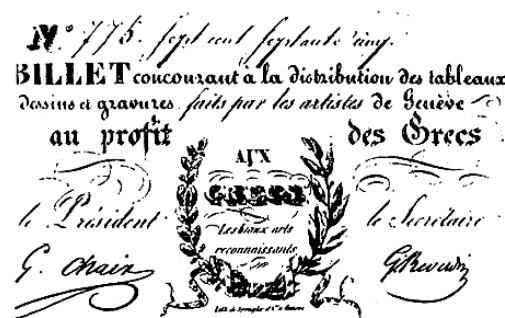 N.º 775. sept cent septante cinq.
BILLET concourant à la distribution des tableaux
dessins et gravures faits par les artistes de Genève
au profit des Grecs
AUX
GRECS
Les beaux arts
reconnaissants
le Président le Secrétaire
G. Chaix GReverdin
Lith de Spengler et C.ie Genève